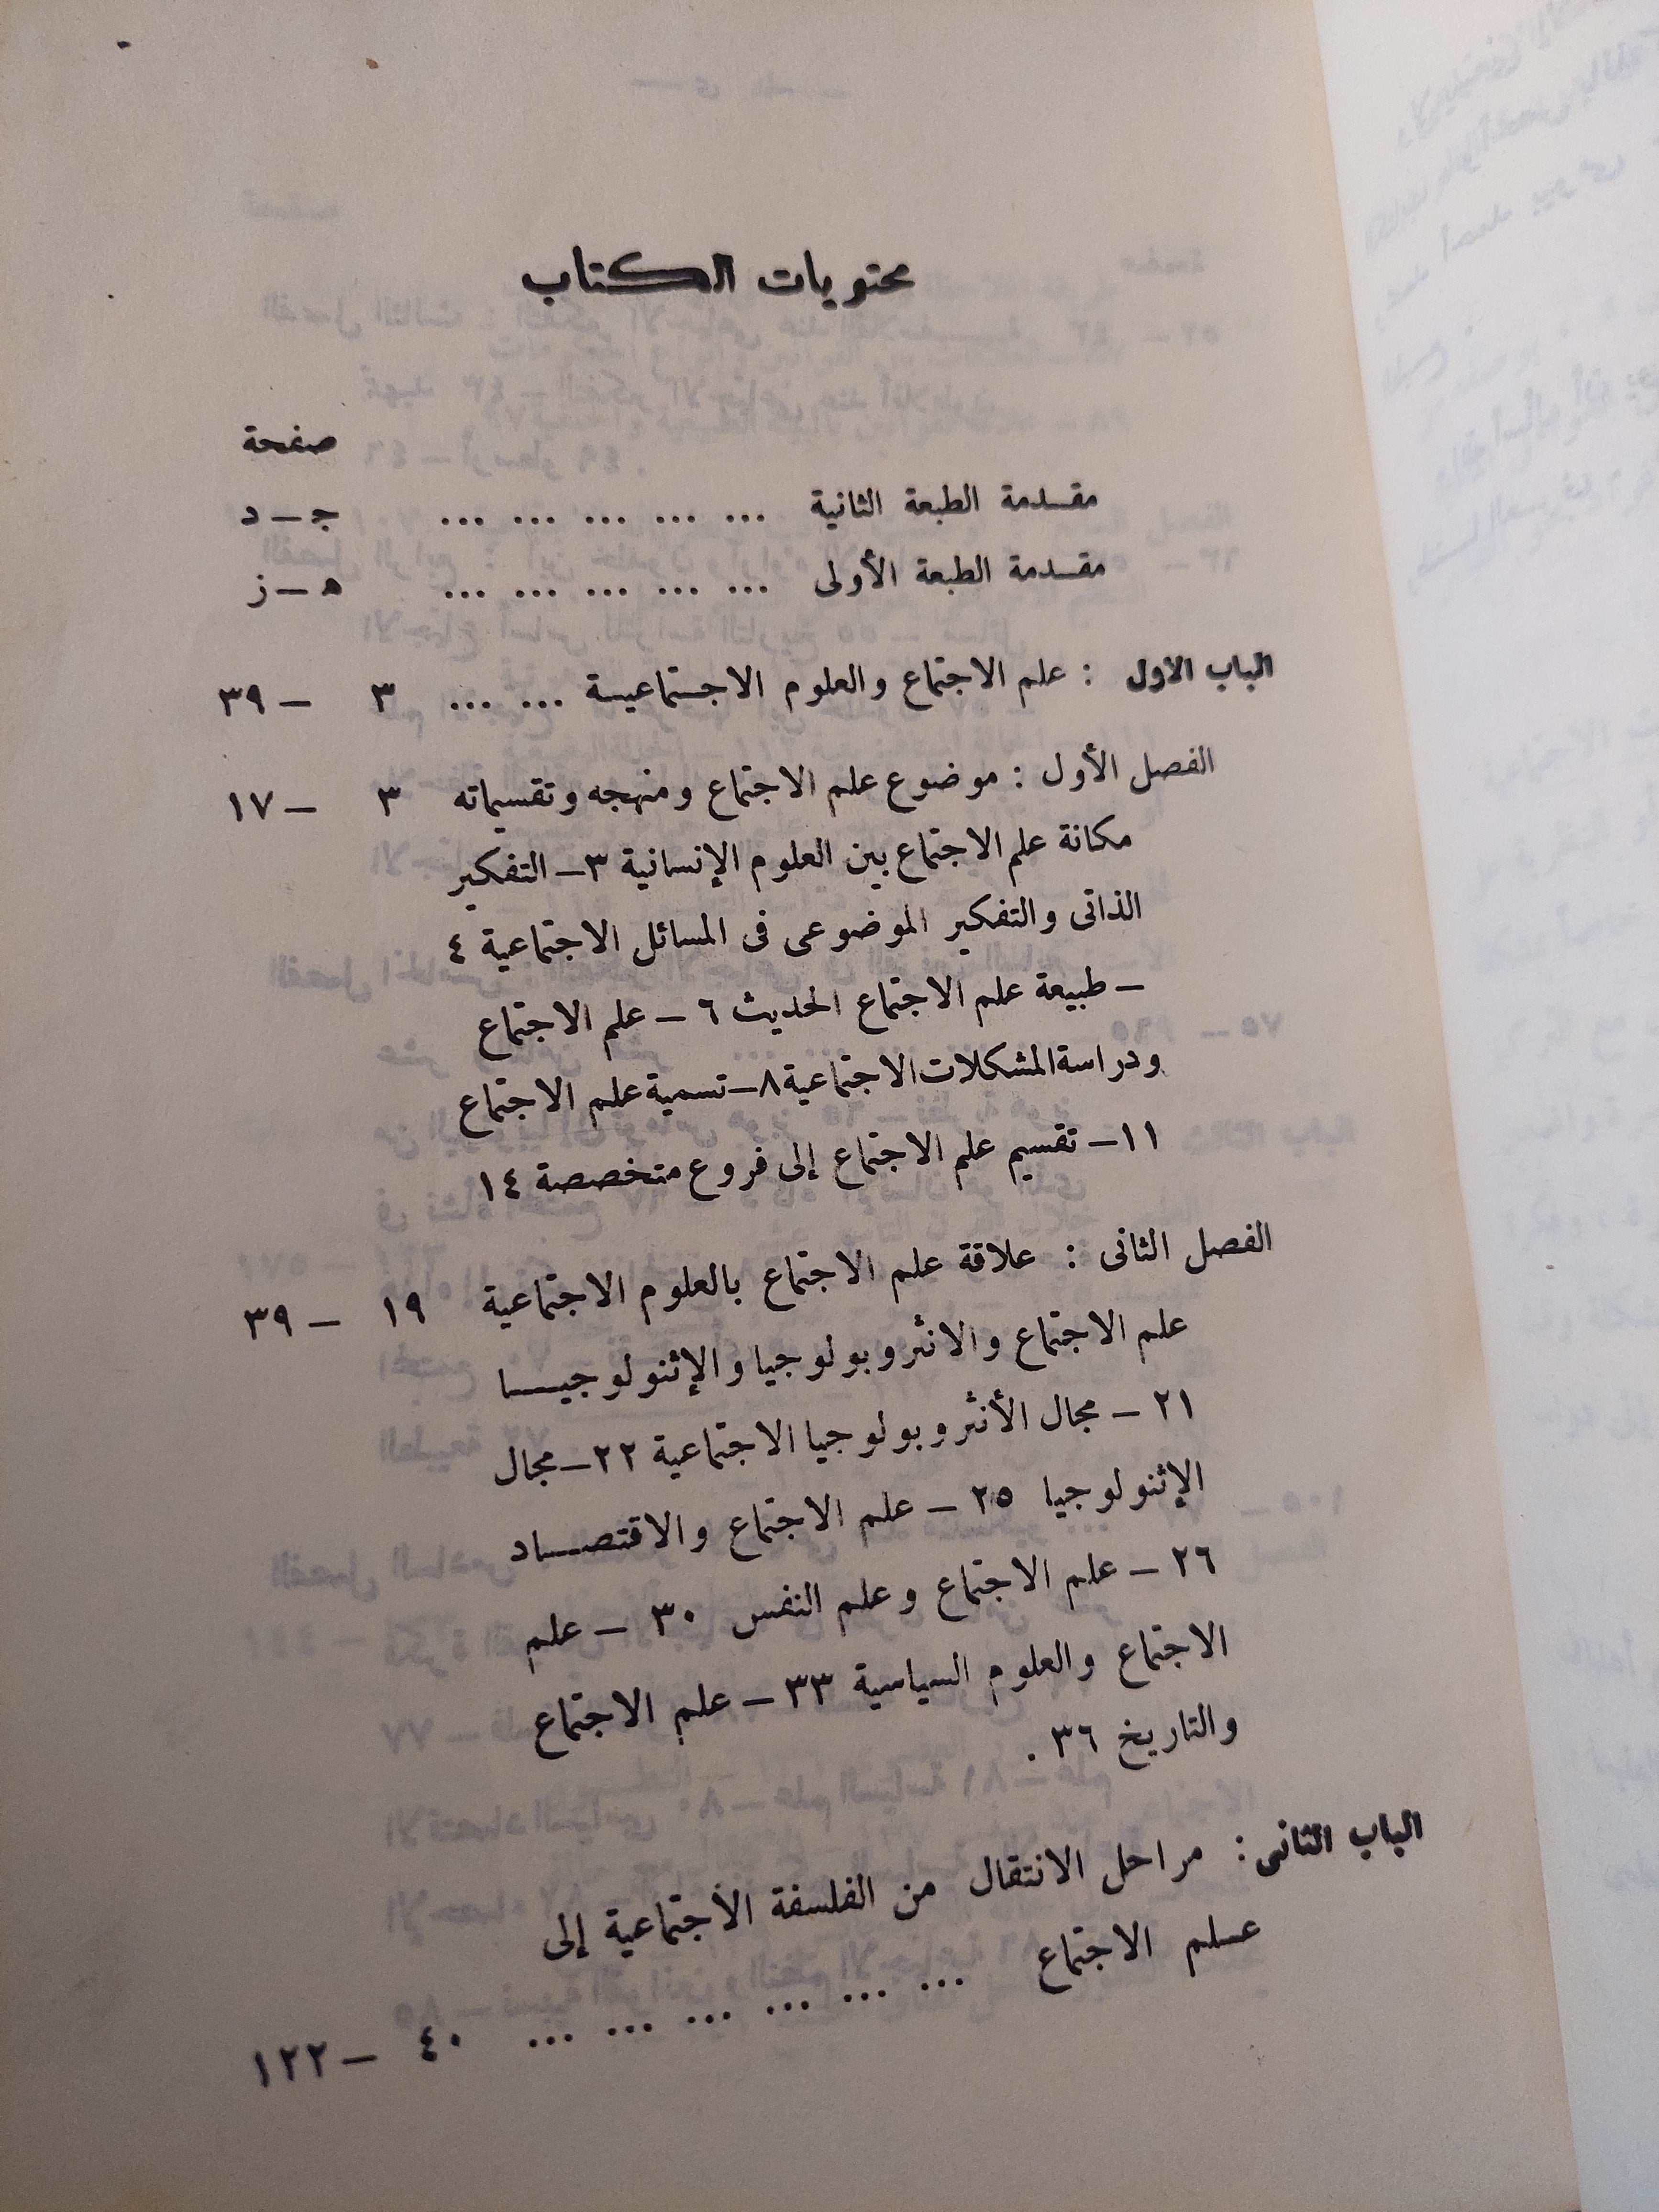 محتويات الكتاب
صفحة
مقدمة الطبعة الثانية ... ... ... ... ... ج – د
مقدمة الطبعة الأولى ... ... ... ... ... ه – ز
الباب الاول : علم الاجتماع والعلوم الاجتماعية ... ... ٣ – ٣٩
الفصل الأول : موضوع علم الاجتماع ومنهجه وتقسيماته ٣ – ١٧
مكانة علم الاجتماع بين العلوم الإنسانية ٣ – التفكير
الذاتى والتفكير الموضوعى فى المسائل الاجتماعية ٤
– طبيعة علم الاجتماع الحديث ٦ – علم الاجتماع
ودراسة المشكلات الاجتماعية ٨ – تسمية علم الاجتماع
١١ – تقسيم علم الاجتماع إلى فروع متخصصة ١٤
الفصل الثانى : علاقة علم الاجتماع بالعلوم الاجتماعية ١٩ – ٣٩
علم الاجتماع والانثروبولوجيا والإثنولوجيا
٢١ – مجال الأنثروبولوجيا الاجتماعية ٢٢ – مجال
الإثنولوجيا ٢٥ – علم الاجتماع والاقتصاد
٢٦ – علم الاجتماع وعلم النفس ٣٠ – علم
الاجتماع والعلوم السياسية ٣٣ – علم الاجتماع
والتاريخ ٣٦ .
الباب الثانى : مراحل الانتقال من الفلسفة الاجتماعية إلى
علم الاجتماع ... ... ... ... ... ... ٤٠ – ١٢٢